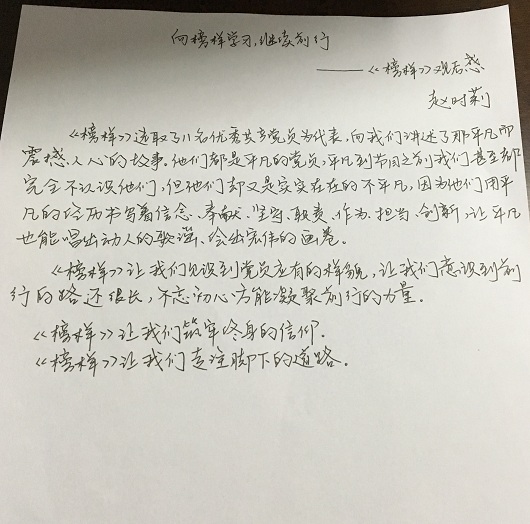 向榜样学习,继续前行
——《榜样》观后感
赵时莉
《榜样》选取了八名优秀共产党员为代表,向我们讲述了那平凡而
震撼人心的故事.他们都是平凡的党员,平凡到节目之前我们甚至都
完全不认识他们,但他们却又是实实在在的不平凡,因为他们用平
凡的经历书写着信念、奉献、坚守、职责、作为、担当、创新,让平凡
也能唱出动人的歌谣、绘出宏伟的画卷。
《榜样》让我们见识到党员应有的样貌,让我们意识到前
行的路还很长,不忘初心方能凝聚前行的力量.
《榜样》让我们筑牢终身的信仰.
《榜样》让我们走注脚下的道路.